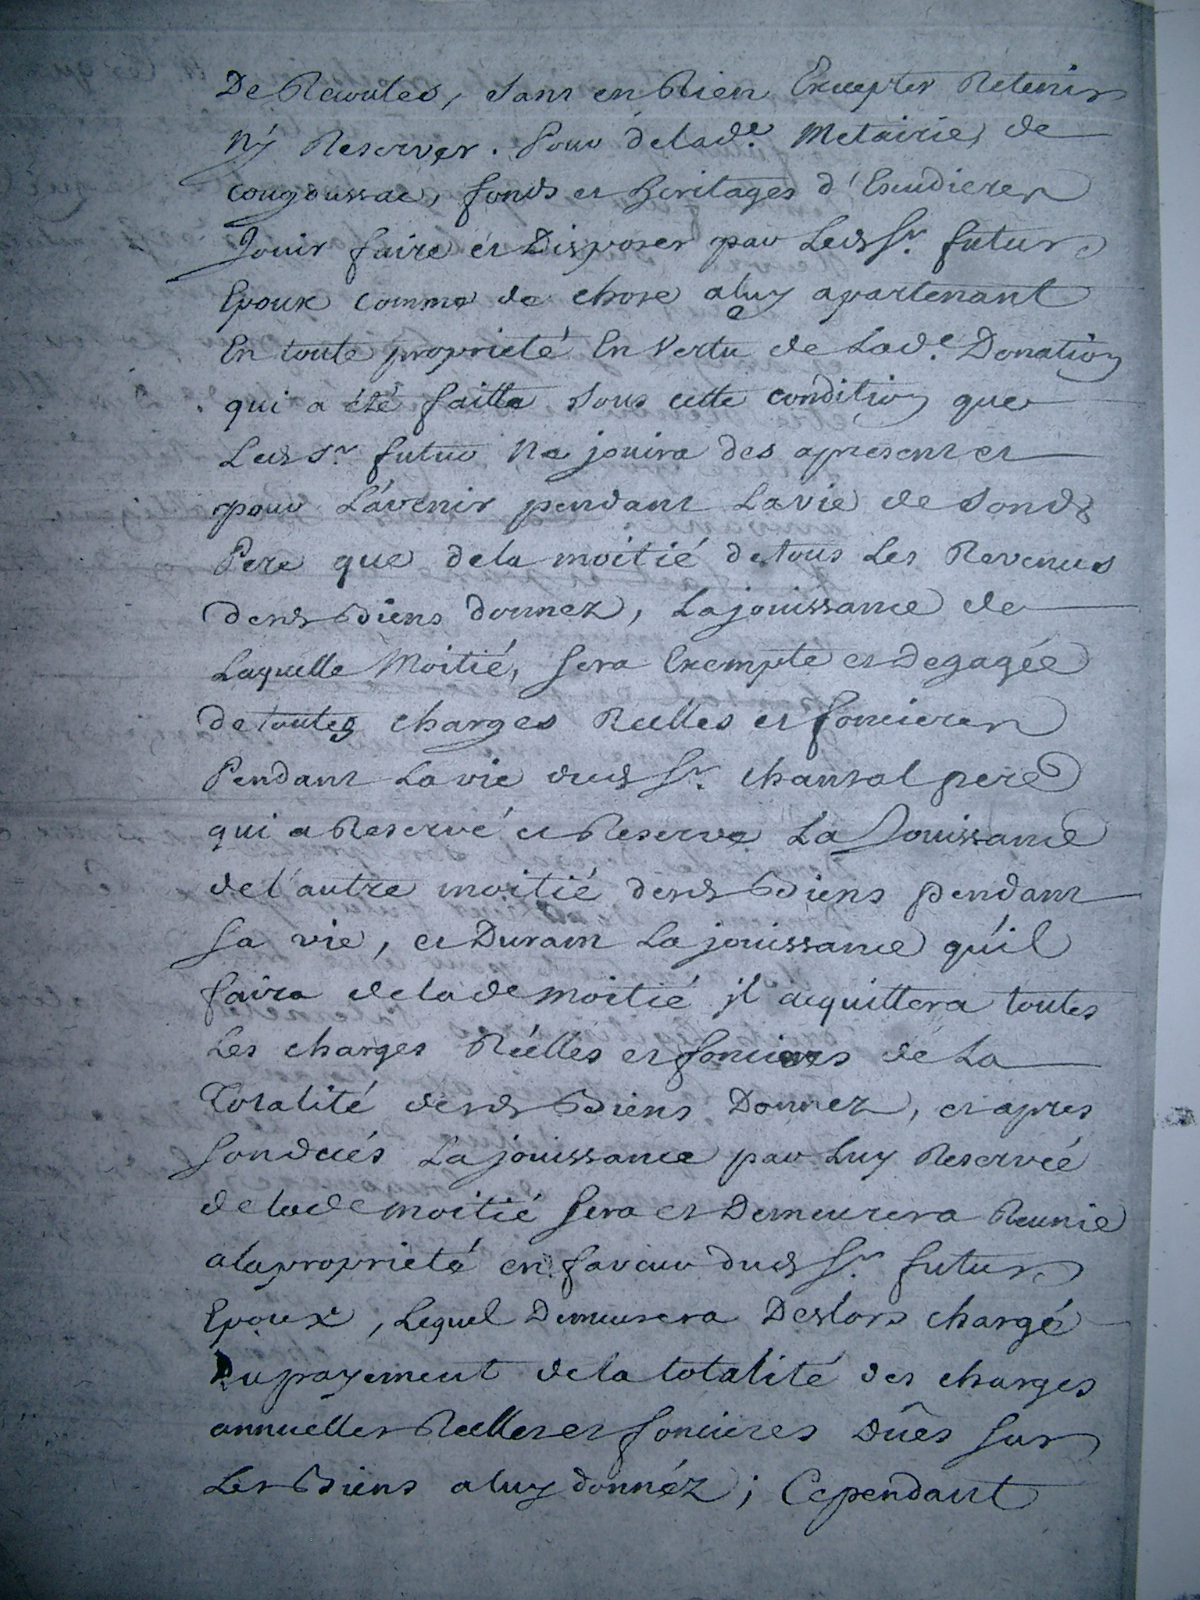 De Recoules, sans en Rien Excepter Retenir
Ny Reserver. Pour de lad.e Metairie de
Cougoussac, fonds et heritages d'Escudieres
Jouir faire et Disposer par Leds Sr. futur
Epoux comme de chose a luy apartenant
En toute proprieté En Vertu de Lad.e Donation
qui a été faitte sous cette condition que
Leds Sr. futur Ne jouira des apresent et
pour L'avenir pendant La vie de Sonds
Pere que de la moitié de tous Les Revenus
desds Biens donnez, La jouissance de
Laquelle Moitié, sera Exempte et Degagée
de toutes charges Réelles et foncieres
Pendant La vie duds Sr. chansal pere
qui a Reservé et Reserve La Jouissance
de l'autre moitié desds Biens pendant
Sa vie, et Durant La jouissance qu'il
faira de lade moitié jl acquittera toutes
Les charges Réelles et foncieres de La
Totalité desds Biens Donnez, et apres
Son decés La jouissance par Luy Reservée
de lade moitié sera et Demeurera Reunie
a la proprieté en faveur duds Sr. futur
Epoux, Lequel Demeurera Deslors chargé
Du payement de la totalité des charges
annuelles Réelles et foncieres Dûes sur
Les Biens a luy donnéz; Cependant